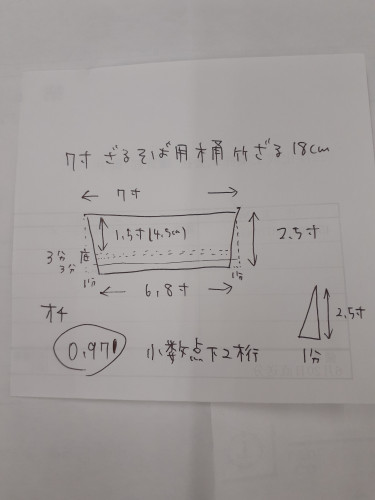 7寸 ざるそば用桶 竹ざる 18cm
7寸
1.5寸(4.5cm)
2.5寸
3分 底
3分
1分 1分
6.8寸
オチ
0.971 小数点下2桁
2.5寸
1分